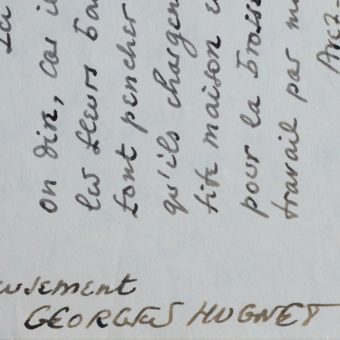 on dire, car i
les fleurs
font pencher
qu'ils chargen
tite maison
pour la bross
travail par m
Avez-
usement
GEORGES HUGNET